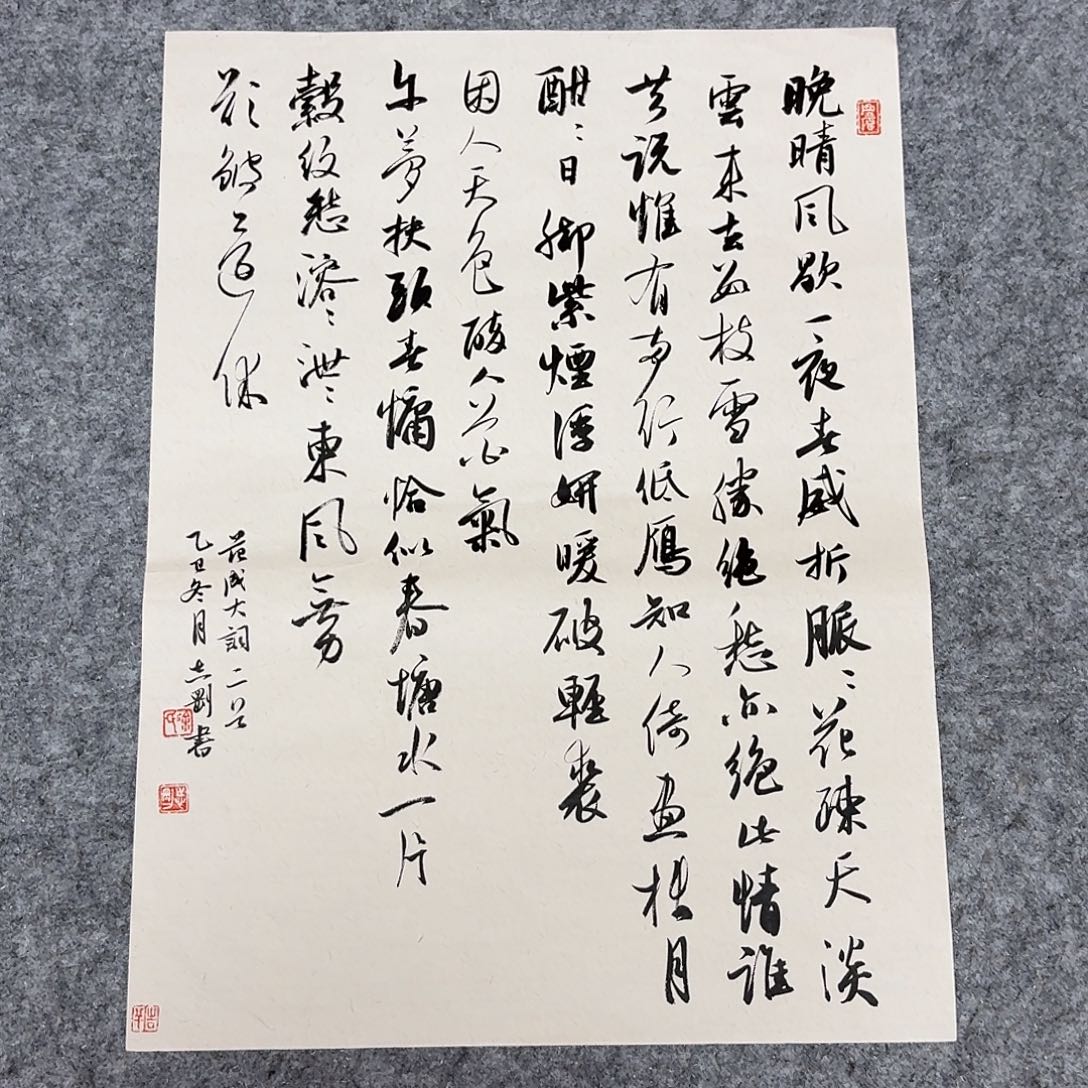 晚晴風歇一夜春威折脈〻花疎天淡
雲來去數枝雪勝絕愁亦絕此情誰
共說惟有兩行低鴈知人倚畫樓月
酣〻日腳紫煙浮妍暖破輕裘
困人天色醉人花氣
午夢扶頭春慵恰似春塘水一片
縠紋愁溶〻洩〻東風無力
欲皺還休
范成大詞二首
乙巳冬月志剛書